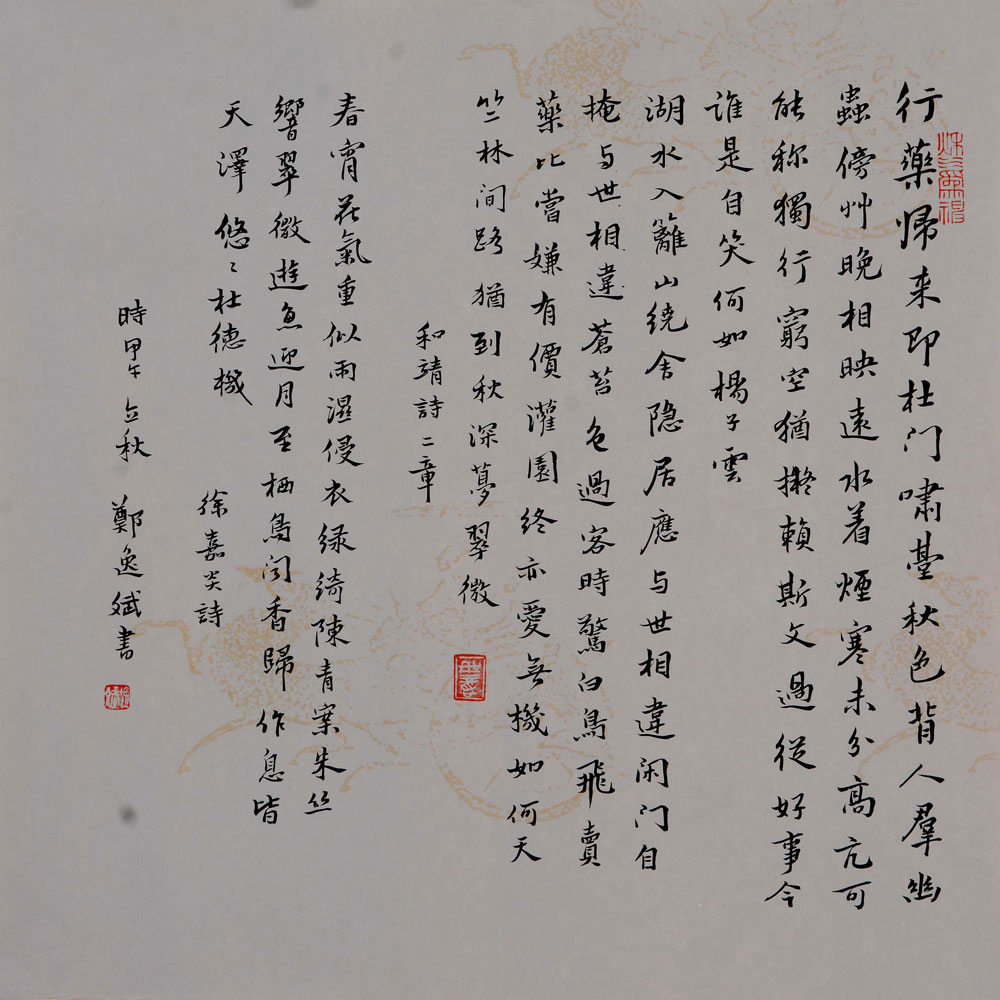 行藥歸来即杜门嘯臺秋色背人羣幽
蟲傍艸晚相映遠水着煙寒未分高亢可
能称獨行窮空猶擬賴斯文過從好事今
誰是自笑何如楊子雲
湖水入籬山绕舍隐居應与世相違闲门自
掩与世相違蒼苔色過客時驚白鳥飛賣
藥比嘗嫌有價灌園终亦愛無機如何天
竺林间路猶到秋深夢翠微
和靖詩二章
春宵花氣重似雨濕侵衣绿绮陳青案朱丝
響翠微遊魚迎月至栖鳥闻香歸作息皆
天澤悠〻杜德機
徐嘉炎詩
時甲午立秋 鄭逸斌書